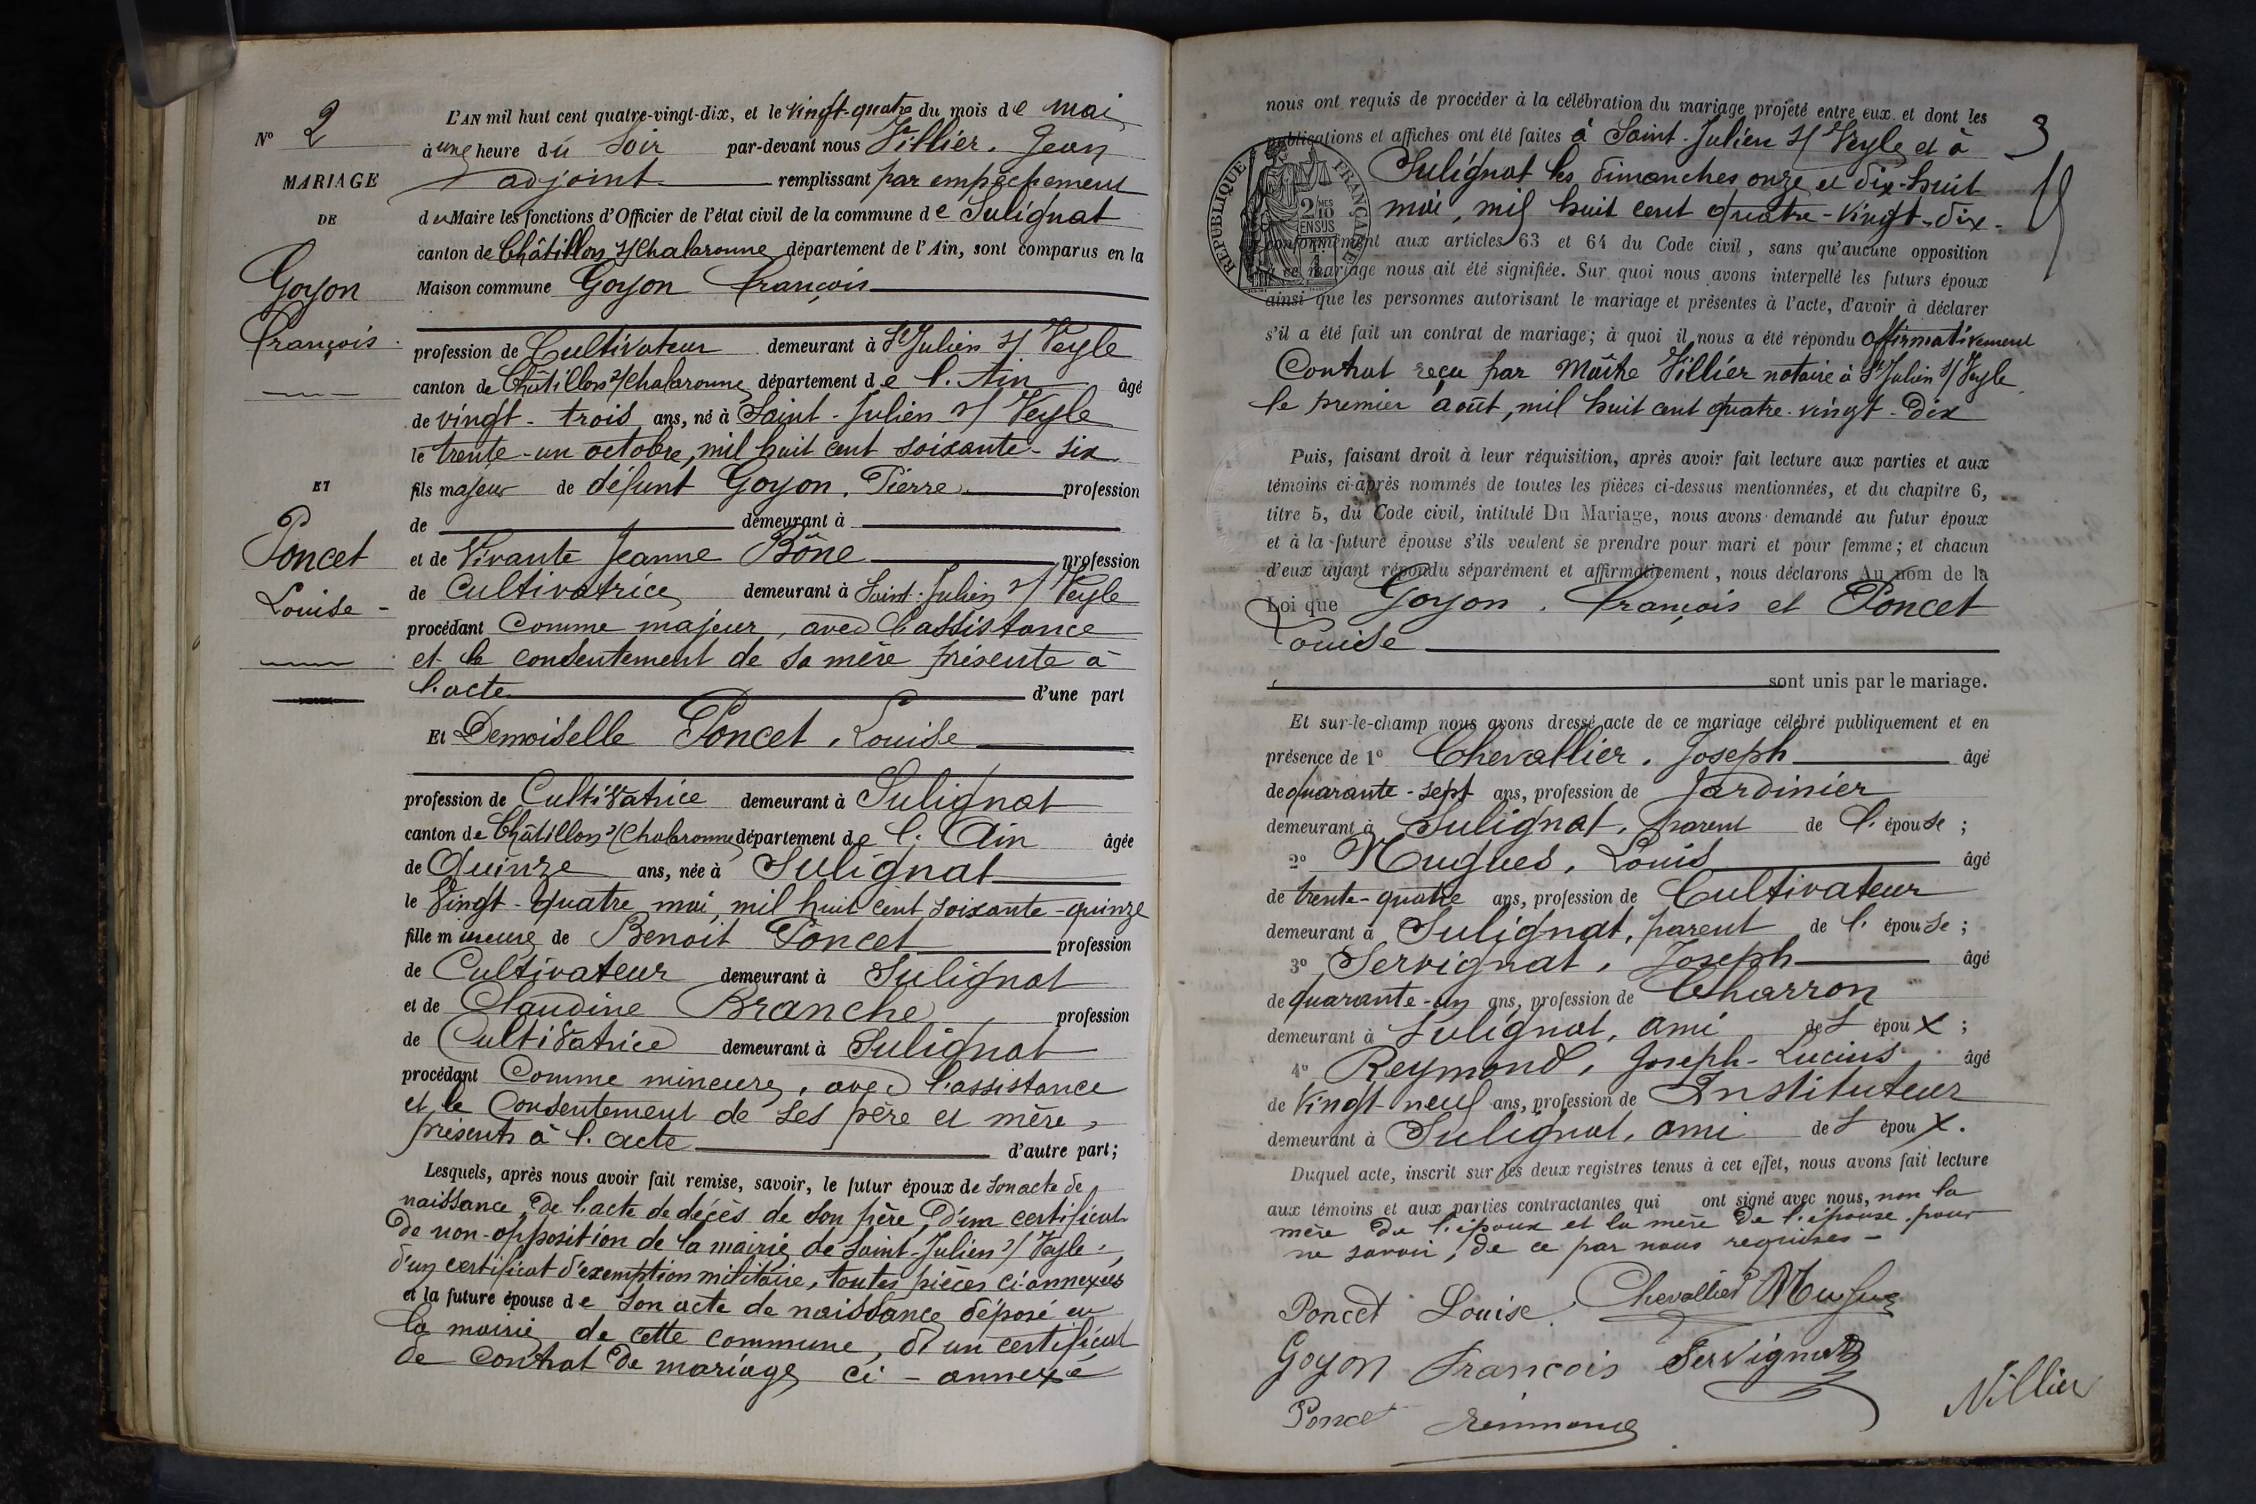 N° 2
MARIAGE
DE
Goyon
François
ET
Poncet
Louise
L'AN mil huit cent quatre-vingt-dix, et le vingt-quatre du mois de mai
à une heure du soir par-devant nous Villier, Jean
adjoint remplissant par empêchement
du Maire les fonctions d'Officier de l'état civil de la commune de Sulignat
canton de Châtillon s/ Chalaronne département de l'Ain, sont comparus en la
Maison commune Goyon François
profession de Cultivateur demeurant à St Julien s/ Veyle
canton de Châtillon s/ Chalaronne département de l'Ain âgé
de vingt-trois ans, né à Saint-Julien s/ Veyle
le trente-un octobre, mil huit cent soixante-six
fils majeur de défunt Goyon, Pierre profession
de demeurant à
et de Vivante Jeanne Bône profession
de Cultivatrice demeurant à Saint-Julien s/ Veyle
procédant Comme majeur, avec l'assistance
et le consentement de sa mère présente à
l'acte d'une part
Et Demoiselle Poncet, Louise
profession de Cultivatrice demeurant à Sulignat
canton de Châtillon s/ Chalaronne département de l'Ain âgée
de Quinze ans, née à Sulignat
le Vingt-quatre mai, mil huit cent soixante-quinze
fille mineure de Benoit Poncet profession
de Cultivateur demeurant à Sulignat
et de Claudine Branche profession
de Cultivatrice demeurant à Sulignat
procédant Comme mineure, avec l'assistance
et le Consentement de ses père et mère,
présents à l'acte d'autre part;
Lesquels, après nous avoir fait remise, savoir, le futur époux de son acte de
naissance, de l'acte de décès de son père, d'un certificat
de non-opposition de la mairie de Saint-Julien s/ Veyle,
d'un certificat d'exemption militaire, toutes pièces ci-annexées
et la future épouse de son acte de naissance déposé en
la mairie de cette commune, d'un certificat
de contrat de mariage ci-annexé
nous ont requis de procéder à la célébration du mariage projeté entre eux et dont les
publications et affiches ont été faites à Saint-Julien s/ Veyle et à
3
Sulignat les dimanches onze et dix-huit
mai, mil huit cent quatre-vingt-dix-
RÉPUBLIQUE FRANÇAISE
2/10 MES
EN SUS
conformément aux articles 63 et 64 du Code civil, sans qu'aucune opposition
à ce mariage nous ait été signifiée. Sur quoi nous avons interpellé les futurs époux
ainsi que les personnes autorisant le mariage et présentes à l'acte, d'avoir à déclarer
s'il a été fait un contrat de mariage; à quoi il nous a été répondu affirmativement
Contrat reçu par Maître Villier notaire à St Julien s/ Veyle
le premier août, mil huit cent quatre-vingt-dix
Puis, faisant droit à leur réquisition, après avoir fait lecture aux parties et aux
témoins ci-après nommés de toutes les pièces ci-dessus mentionnées, et du chapitre 6,
titre 5, du Code civil, intitulé Du Mariage, nous avons demandé au futur époux
et à la future épouse s'ils veulent se prendre pour mari et pour femme; et chacun
d'eux ayant répondu séparément et affirmativement, nous déclarons Au nom de la
Loi que Goyon, François et Poncet
Louise
sont unis par le mariage.
Et sur-le-champ nous avons dressé acte de ce mariage célébré publiquement et en
présence de 1° Chevallier, Joseph âgé
de quarante-sept ans, profession de Jardinier
demeurant à Sulignat, parent de l'épouse;
2° Mugues, Louis âgé
de trente-quatre ans, profession de Cultivateur
demeurant à Sulignat, parent de l'épouse;
3° Servignat, Joseph âgé
de quarante-un ans, profession de Charron
demeurant à Sulignat, ami de l'époux;
4° Reymond, Joseph-Lucius âgé
de Vingt-neuf ans, profession de Instituteur
demeurant à Sulignat, ami de l'époux.
Duquel acte, inscrit sur les deux registres tenus à cet effet, nous avons fait lecture
aux témoins et aux parties contractantes qui ont signé avec nous, non la
mère de l'époux et la mère de l'épouse pour
ne savoir, de ce par nous requises-
Poncet Louise Chevallier Mugue
Goyon François Servignat
Poncet Villier